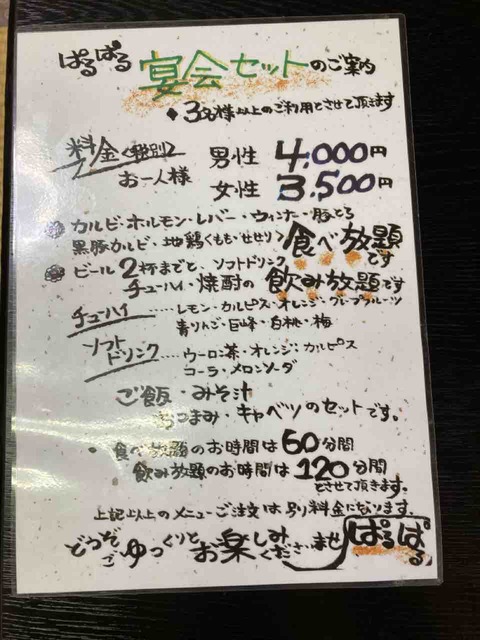 ぱるぱる 宴会セットのご案内
◆3名様以上のご利用とさせて頂きます
料金<税別>
お一人様
男性 4,000円
女性 3,500円
カルビ・ホルモン・レバー・ウィンナー・豚とろ
黒豚カルビ・地鶏<もも・せせり> 食べ放題です
ビール2杯までと、ソフトドリンク
チューハイ・焼酎の 飲み放題です
チューハイ……レモン・カルピス・オレンジ・グレープフルーツ
青りんご・巨峰・白桃・梅
ソフトドリンク……ウーロン茶・オレンジ・カルピス
コーラ・メロンソーダ
ご飯・みそ汁
おつまみ・キャベツのセットです。
・食べ放題のお時間は60分間
飲み放題のお時間は120分間
とさせて頂きます。
上記以上のメニューご注文は別料金になります。
どうぞごゆっくりとお楽しみくださいませ ぱるぱる